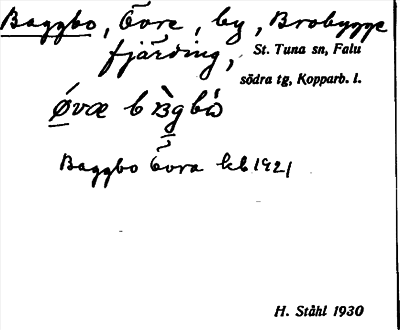 Baggbo, Övre, by, Brobygge
fjärding, St. Tuna sn, Falu
södra tg, Kopparb. l.
Øvæ
Baggbo Övra kb 1921
H. Ståhl 1930